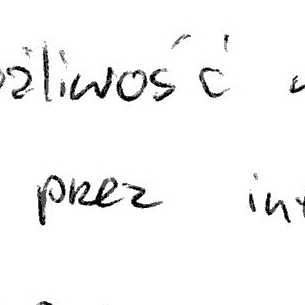 ożliwość
prez int